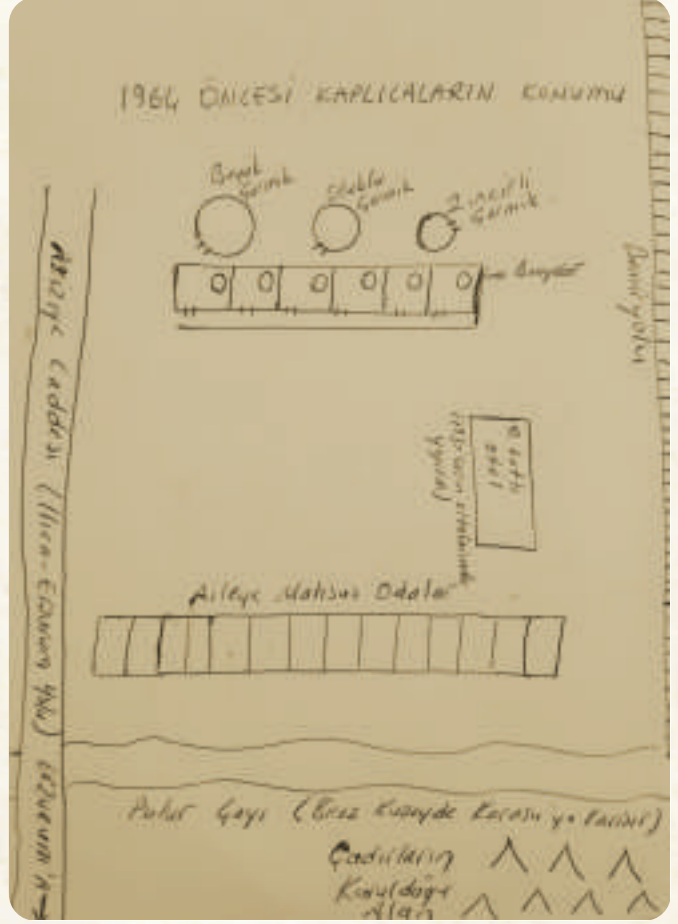 1964 ÖNCESİ KAPLICALARIN KONUMU
Büyük
Germik
Germik
2 incili
Germik
Banyolar
Demiryolu
Aziziye Caddesi (Ilıca-Erzurum Yolu) Erzurum'a →
2 katlı
otel
yıkıldı)
Aileye Mahsus Odalar
Pulur Çayı (Biraz Kuzeyde Karasu'ya Karışır)
Çadırların
Kurulduğu
Alan